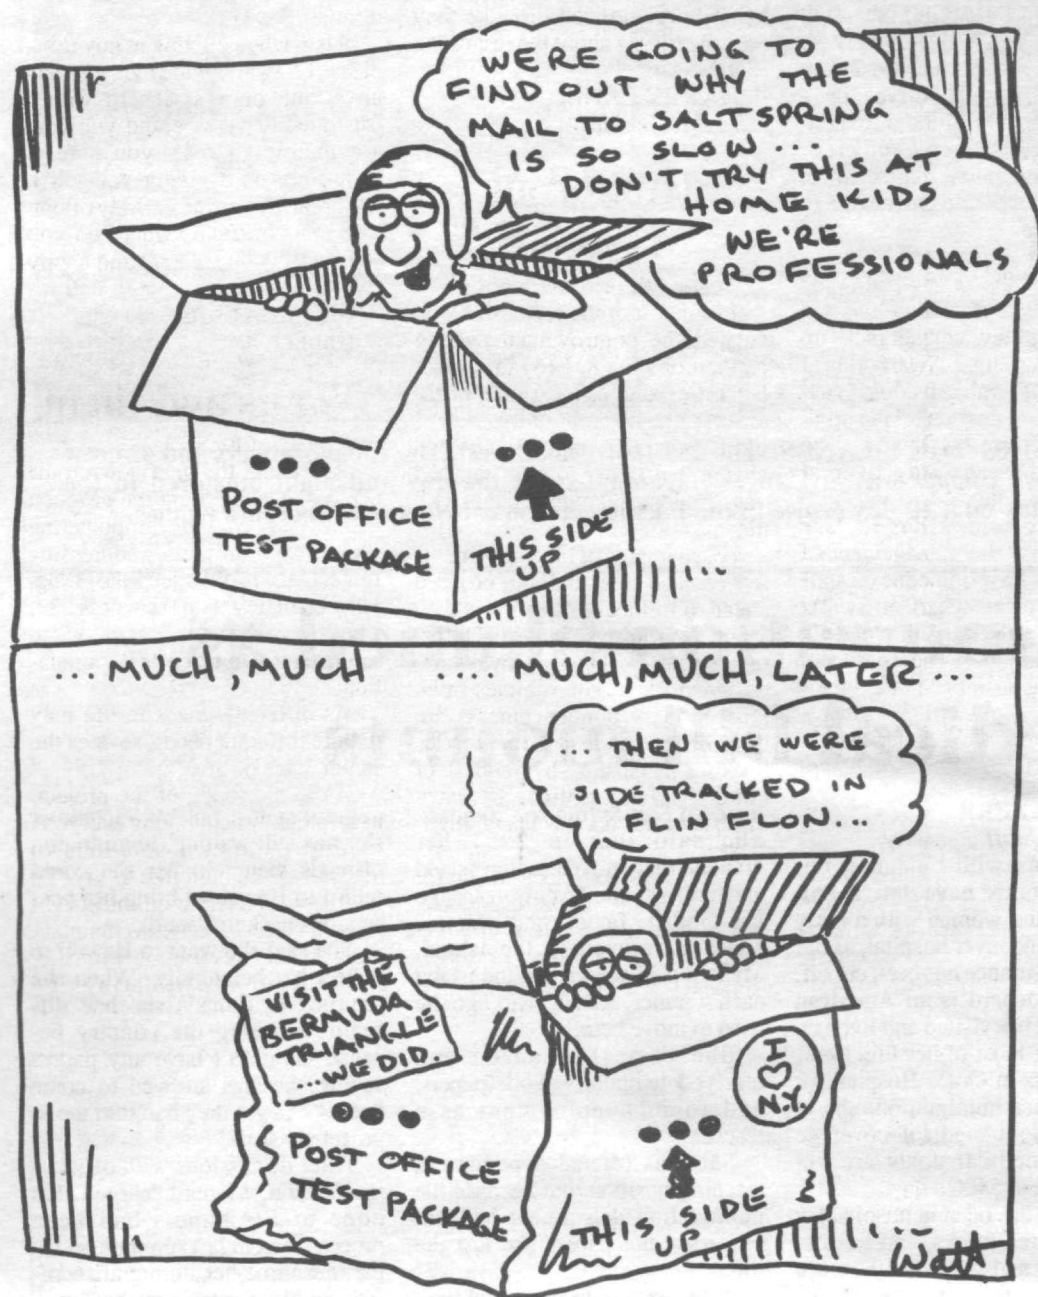 WERE GOING TO
FIND OUT WHY THE
MAIL TO SALTSPRING
IS SO SLOW...
DON'T TRY THIS AT
HOME KIDS
WE'RE
PROFESSIONALS
POST OFFICE
TEST PACKAGE
THIS SIDE
UP
...MUCH, MUCH .... MUCH, MUCH, LATER...
... THEN WE WERE
SIDE TRACKED IN
FLIN ELON...
VISIT THE
BERMUDA
TRIANGLE
...WE DID...
I
N.Y.
POST OFFICE
TEST PACKAGE
THIS SIDE
UP
Watt